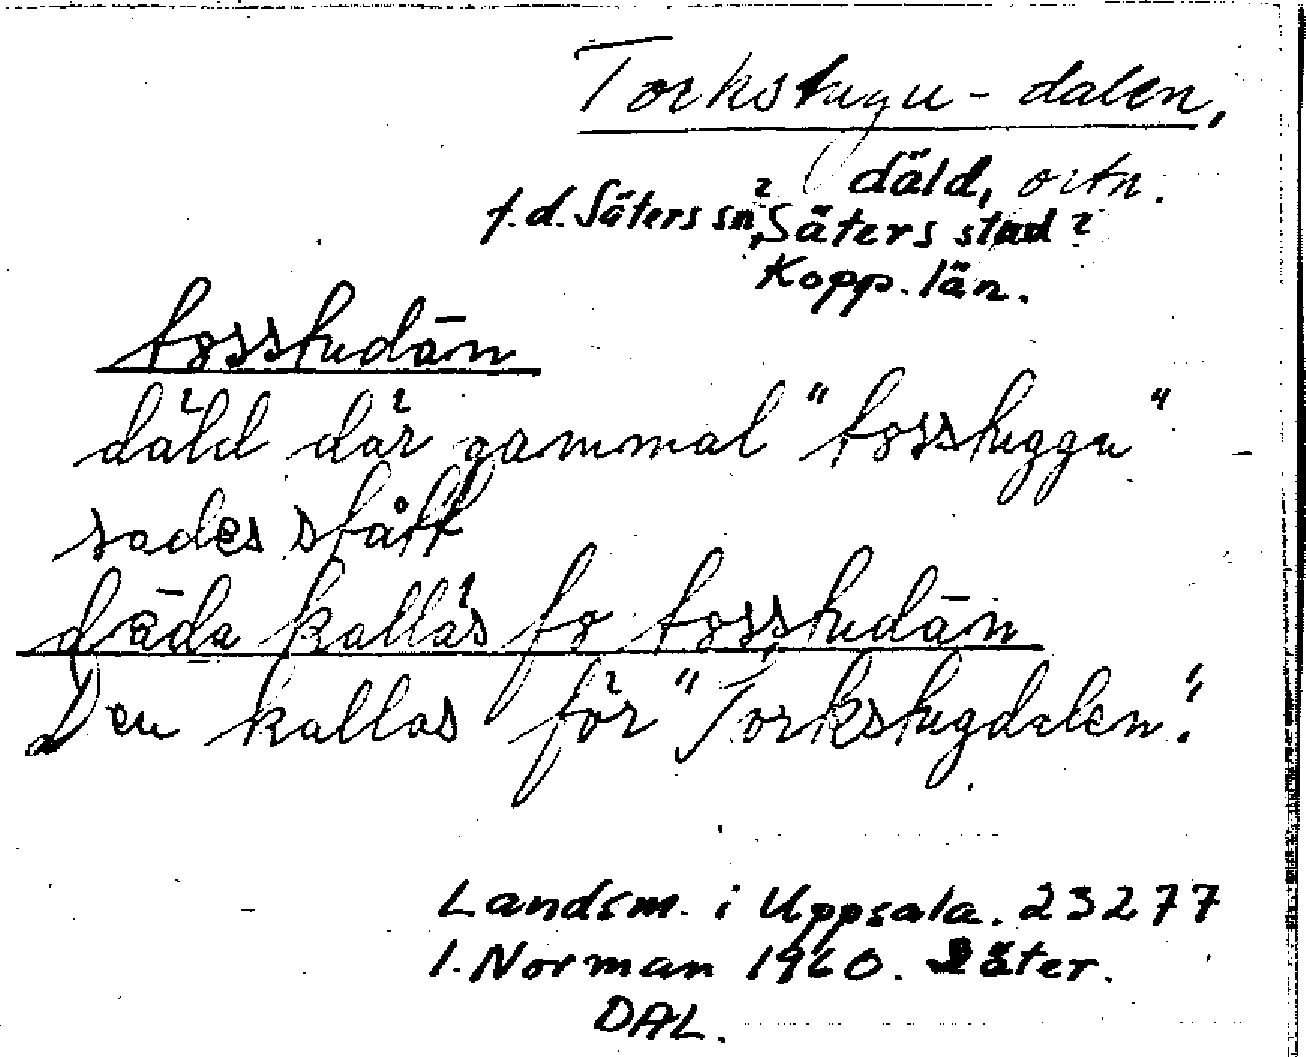 Torkstugu-dalen,
däld, ortn.
f.d. Säters sn?, Säters stad?
Kopp. län.
tɞsstudān
däld där gammal "tɞsstuggu"
sades stått
dāda kallas fɞ tɞsstudān
Den kallas för "Torkstugdalen".
Landsm. i Uppsala. 23277
I. Norman 1960. Säter.
DAL.